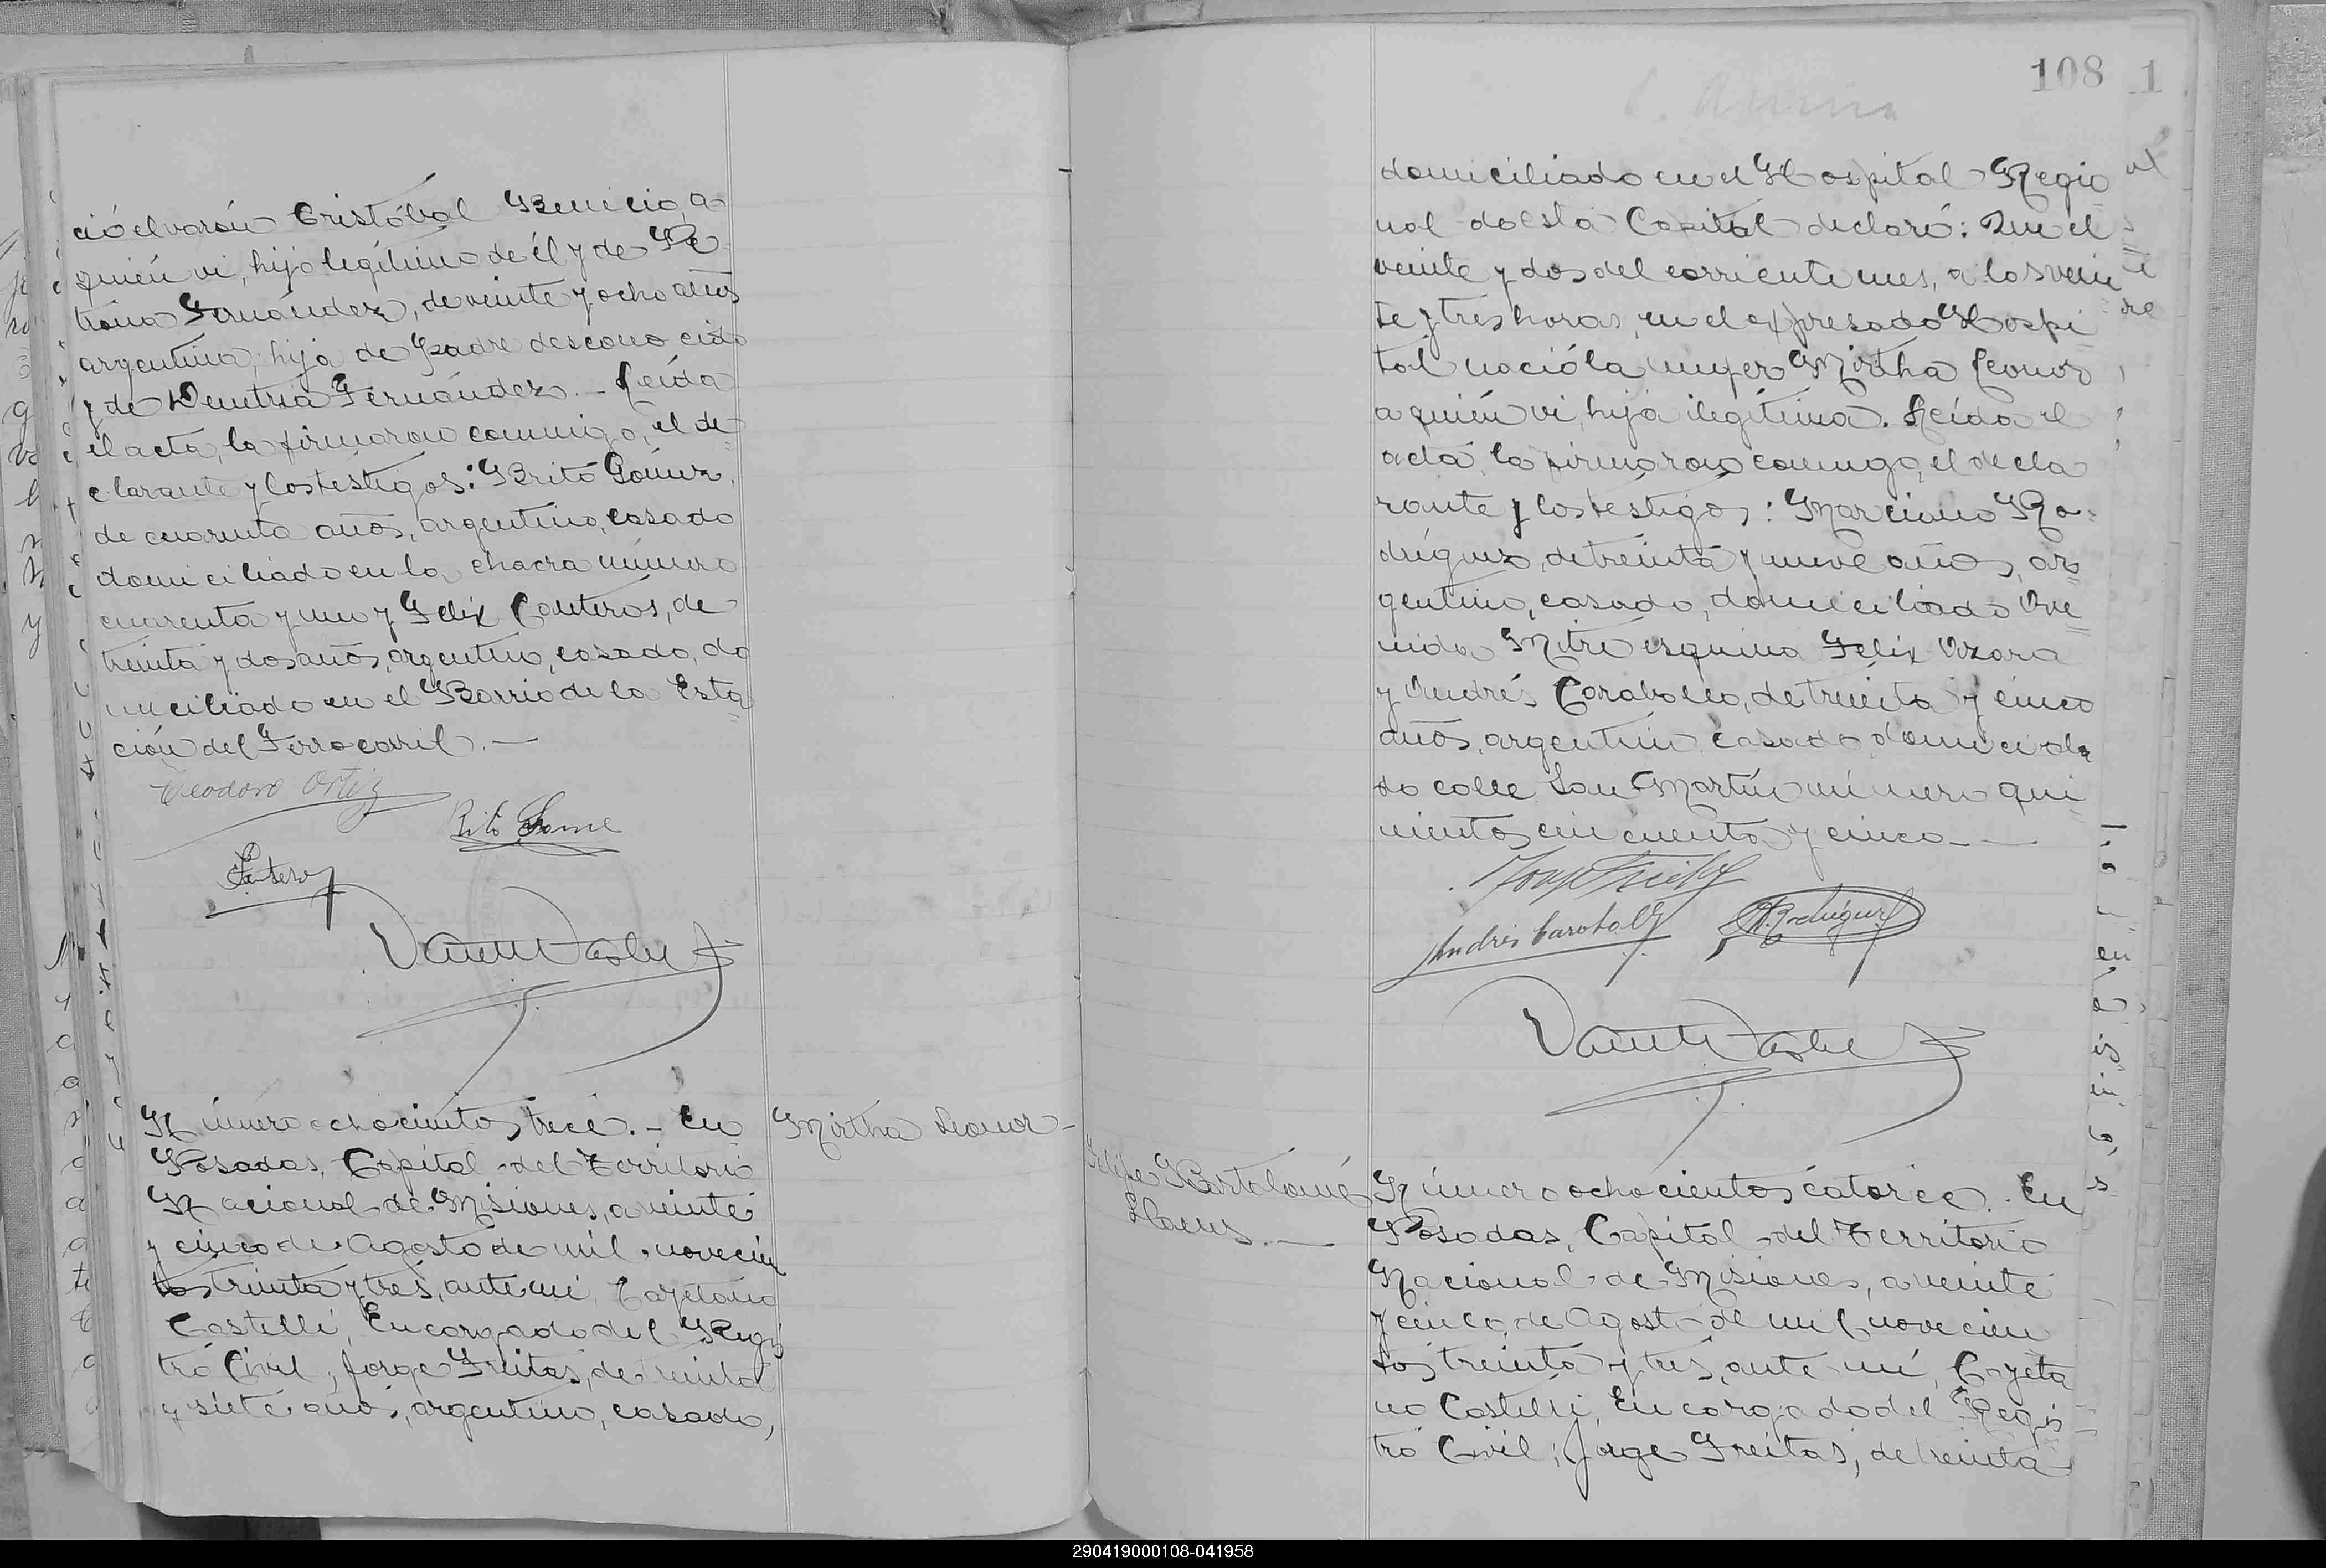 ció el varón Cristóbal Benicio, a
quién vi, hijo legítimo de él y de Pe
trona Fernández, de veinte y ocho años
argentina, hija de Padre descono cido
y de Demetria Fernández. - Leída
el acta, la firmaron conmigo, el de=
clarante y los testigos: Brito Gómez,
de cuarenta años, argentino, casado
domiciliado en la chacra número
cuarenta y uno y Felix Canteros, de
treinta y dos años, argentino, casado, do
miciliado en el Barrio de la Esta=
ción del Ferrocarril. —
Teodoro Ortiz
Número ochocientos trece. - En
Posadas, Capital del Territorio
Nacional de Misiones, a veinte
y cinco de Agosto de mil novecien
tos treinta y tres, ante mi, Cayetano
Castelli, Encargado del Regis
tro Civil, Jorge Freitas, de treinta
y siete años, argentino, casado,
Mirtha Leonor -
108
domiciliado en el Hospital Regio
nal de esta Capital declaró: Que el
veinte y dos del corriente mes, a las vein
te y tres horas, en el expresado Hospi
tal nació la mujer Mirtha Leonor
a quién vi, hija ilegítima. Leída el
acta, la firmaron conmigo, el decla
rante y los testigos: Marciano Ro=
dríguez, de treinta y nueve años, ar=
gentino, casado, domiciliado Ave=
nida Mitre esquina Felix Azara
y Andrés Carabollo, de treinta y cinco
años, argentino casado domicilia
do calle San Martín número qui=
nientos cincuenta y cinco - —
M. Rodríguez
Felipe Bartolomé
Llanes. —
Número ochocientos catorce. - En
Posadas, Capital del Territorio
Nacional de Misiones, a veinte
y cinco de Agosto de mil novecien
tos treinta y tres, ante mi, Cayeta
no Castelli, Encargado del Regis
tro Civil, Jorge Freitas, de treinta
290419000108-041958